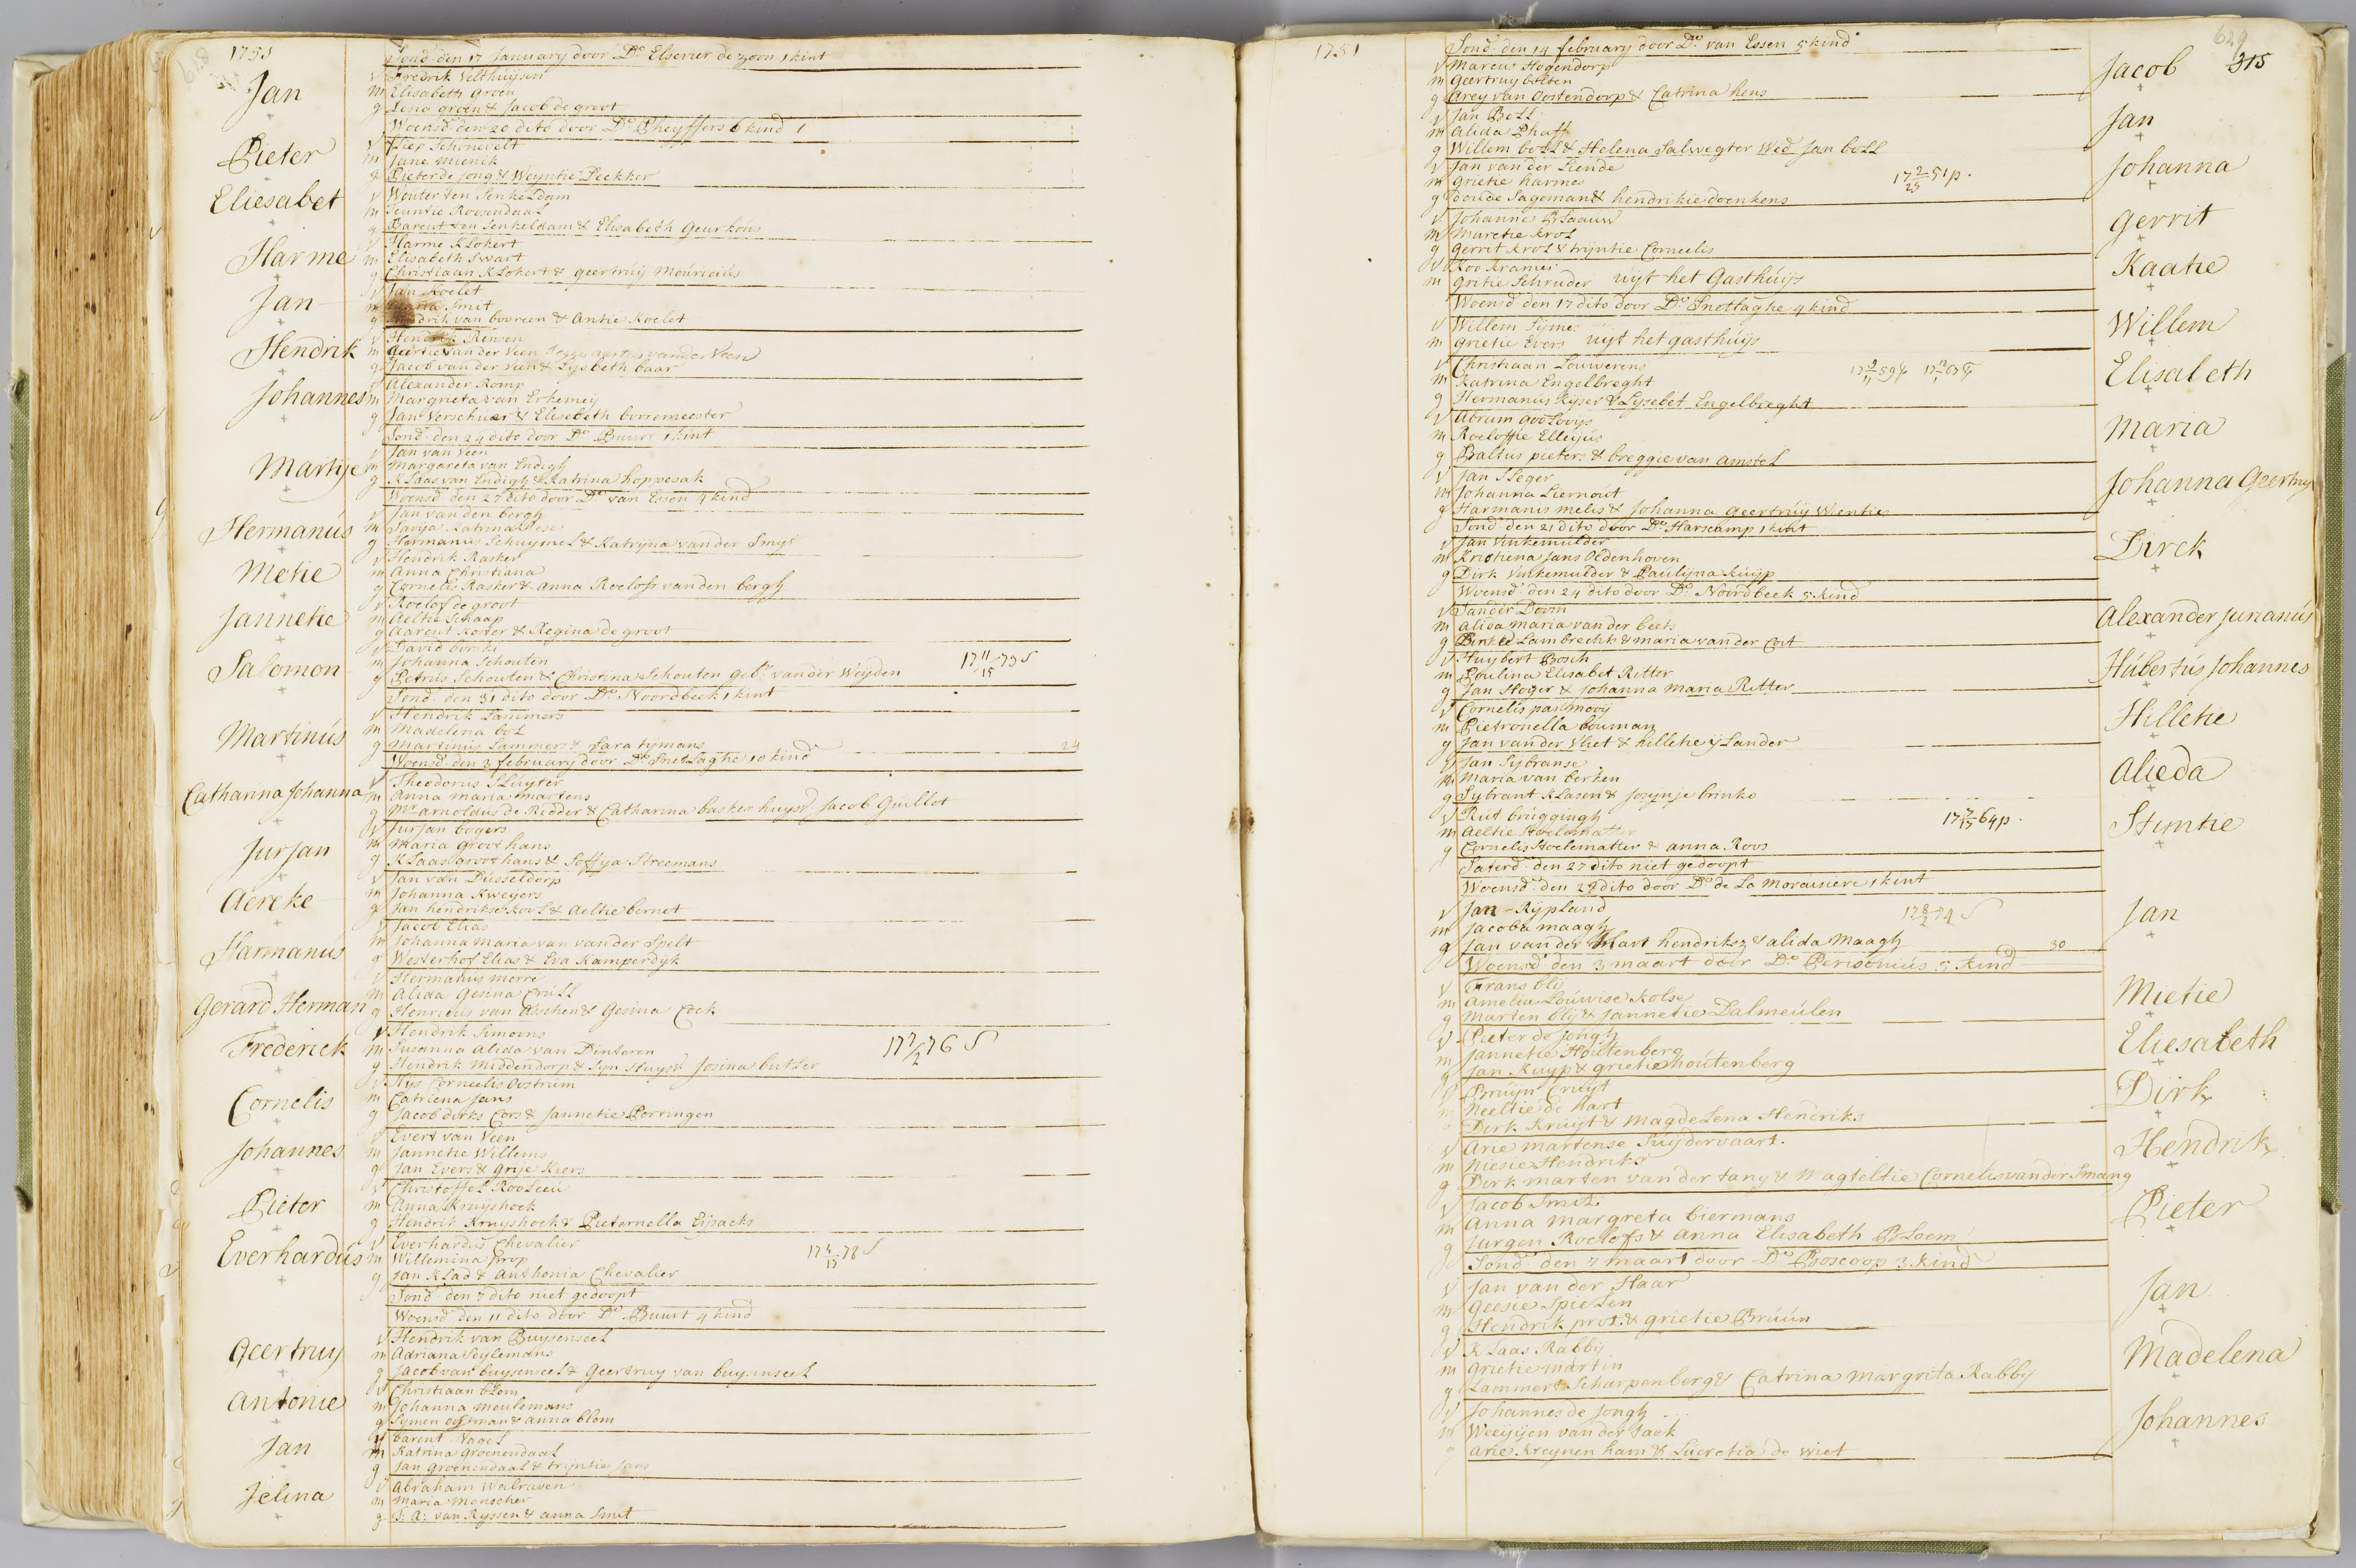 1751
Sond. den 17 January door Do. Elsevier de zoon 1 kint
Jan
v Fredrik Velthuysen
m Elisabeth Groen
g Lena groen & Jacob de groot
Woensd. den 20 dito door Do. Pheyffers 6 kind
Pieter
v Schonevelt
m Jane Mienik
g Pieter de jong & Weyntie Deckker
Eliesabet
v Wouter ten Senkeldam
m Teuntie Roosendaal
g Barent ten Senkeldam & Elisabeth Geurkens
Harme
v Harme Klokert
m Elisabeth Swart
g Christiaan Klokert & geertruij Mouricius
Jan
v Jan Koelet
m Maria Smit
g Hendrik van booreen & Antie Koelet
Hendrik
v Hendrik Rensen
m Geertie van der Veen
g Jacob van der Veen & Lysbeth baar
Johannes
v Alexander Romp
m Margrieta van Erkemeij
g Jan Verschuer & Elisebeth borremeester
Sond. den 24 dito door Do. Buurt 1 kint
Martije
v Jan van Veen
m Margareta van Endigh
g Klaas van Endigh & Katrina hoppesak
Woensd. den 27 dito door Do. van Essen 4 kind
Hermanús
v Jan van den bergh
m Katrina
g Harmanus Schuymel & Katrijna van der Smijt
Metie
v Hendrik Rasker
m Anna Christiana
g Cornelis Rasker & Anna Roelofs van den bergh
Jannetie
v Roelof de groot
m Aeltie Schaap
g Aarent Koster & Regina de groot
Salomon
v David borski
m Johanna Schouten
g Petrus Schouten & Christina Schouten geb. van der Weyden
17 11/15 73 S
Sond. den 31 dito door Do. Noordbeek 1 kint
Martinús
v Hendrik Lammers
m Madelena bol
g Martinus Lammers & Sara tijmans
24
Woensd. den 3 february door Do. Snetlaghe 10 kind
Catharina Johanna
v Theodorus Sluyter
m Anna Maria Martens
g Mr. Arnoldus de Ridder & Catharina basker huysv. Jacob Guillot
Jurjan
v Jurjan bogers
m Maria Groothans
g Klaas Groothans & Soffija Streemans
Aereke
v Jan van Dusseldorp
m Johanna Kweyers
g Jan hendrikse Kool & Aeltie bernet
Harmanús
v Jacob Elias
m Johanna Maria van van der Spelt
g Westerhof Elias & Eva Kamperdyk
Gerard Herman
v Hermanus morre
m Alida Gesina Crull
g Henricus van Asschen & Gesina Cock
Frederick
v Hendrik Simoons
m Susanna Alida van Dinteren
g Hendrik Middendorp & Syn Huysv. Josina butter
17 7/2 76 S
Cornelis
v Hys Corneelis Oostrum
m Catriena Jans
g Jacob dirks Cors & Jannetie Porringen
Johannes
v Evert van Veen
m Jannetie Willems
g Jan Evers & Grije Kiers
Pieter
v Christoffel Rooleeu
m Anna Kruyshoek
g Hendrik Kruyshoek & Pieternella Eijsacks
Everhardús
v Everhardus Chevalier
m Willemina prop
g Jan Klad & Anthonia Chevalier
Sond. den 7 dito niet gedoopt
Woensd. den 11 dito door Do. Buurt 4 kind
Geertruy
v Hendrik van Buysenseel
m Adriana Seylemans
g Jacob van buysenseel & Geertruy van buysenseel
Antonie
v Christiaan blom
m Johanna Meulemans
g Symen Oostman & Anna blom
Jan
v barent Vogel
m Katrina Groenendaal
g Jan Groenendaal & trijntie Jans
Jelina
v Abraham Walraven
m Maria Menscher
g J: A: van Ryssen & anna Smit
1751
629
315
Sond. den 14 february door Do. van Essen 5 kind
Jacob
v Marcus Hogendorp
m Geertruy bolten
g Arey van Oostendorp & Catrina hens
Jan
v Jan Boll
m Alida Phaff
g Willem boll & Helena Salwegter Wed. Jan boll
Johanna
v Jan van der Liende
m grietie harmes
g Doede Sageman & hendrikie doenkens
17 2/25 51 p.
gerrit
v Johannes Blaauw
m Maretie Krol
g gerrit Krol & trijntie Corneelis
Kaatie
v Koo Kramer
m gritie Schruder uijt het Gasthuijs
Woensd. den 17 dito door Do. Snetlaghe 4 kind
Willem
v Willem Sijmes
m grietie Evers uijt het gasthuijs
Elisabeth
v Christiaan Louwerens
m Katrina Engelbreght
g Hermanus Kyser & Lysebet Engelbreght
Maria
v Abrum
m Roeloffie Elleyus
g Baltus pieters & breggie van amstel
Johanna Geertruy
v Jan Sleger
m Johanna Liernout
g Harmanis melis & Johanna geertruij Wenties
Sond. den 21 dito door Do. Harscamp 1 kint
Dirck
v Jan Vinkemulder
m Kristiena Jans Oldenhoven
g Dirk Vinkemulder & Paulijna Kuyp
Woensd. den 24 dito door Do. Noordbeek 5 kind
Alexander Jurianús
v Sander Doorn
m Alida maria van der beek
g Lambrechts & maria van der Cat
Húbertús Johannes
v Huybert Bosch
m Poulina Elisabet Ritter
g Jan Hoger & Johanna Maria Ritter
Hilletie
v Cornelis pas mooij
m Pietronella bouman
g Jan van der Vliet & hilletie ijlander
Alieda
v Jan Sijbranse
m Maria van berken
g Sybrant Klasen & Josynje brinko
Stintie
v Rut bruggingh
m Aeltie Stoelematter
g Cornelis Stoelematter & anna Roos
17 7/17 64 p.
Saterd. den 27 dito niet gedoopt
Woensd. den 28 dito door Do. de La Moraisiere 1 kint
Jan
v Jan - Rypland
m Jacoba maagh
g Jan van der Hart hendriksz & alida Maagh
30
Woensd. den 3 maart door Do. Perisonius 5 kind
Mietie
v Frans blij
m Amelia Louwise Kolse
g Marten blij & Jannetie Dalmeulen
Eliesabeth
v Pieter de Jongh
m Jannetie Houtenberg
g Jan Kuyp & grietie houtenberg
Dirk
v Bruijn Cruyt
m Neeltie de Hart
Dirk Kruijt & Magdelena Hendriks
Hendrik
v Arie martense Suydervaart.
m Niesie Hendriks
g Dirk marten van der tang & Magteltie Cornelis van der Smang
Pieter
v Jacob Smit
m Anna Margreta biermans
g Jurgen Roelofs & Anna Elisabeth Bloem
Sond. den 7 maart door Do. Boscoop 3 kind
Jan
v Jan van der Haar
m Geesie Spielen
g Hendrik prot & grietie Bruún
Madelena
v Klaas Rabbij
m Grietie martin
g Lammert Scharpenberg & Catrina Margrita Rabbij
Johannes
v Johannes de Jongh
m Weeyijen van der Jack
arie Kreynen ham & Lucretia de vriet